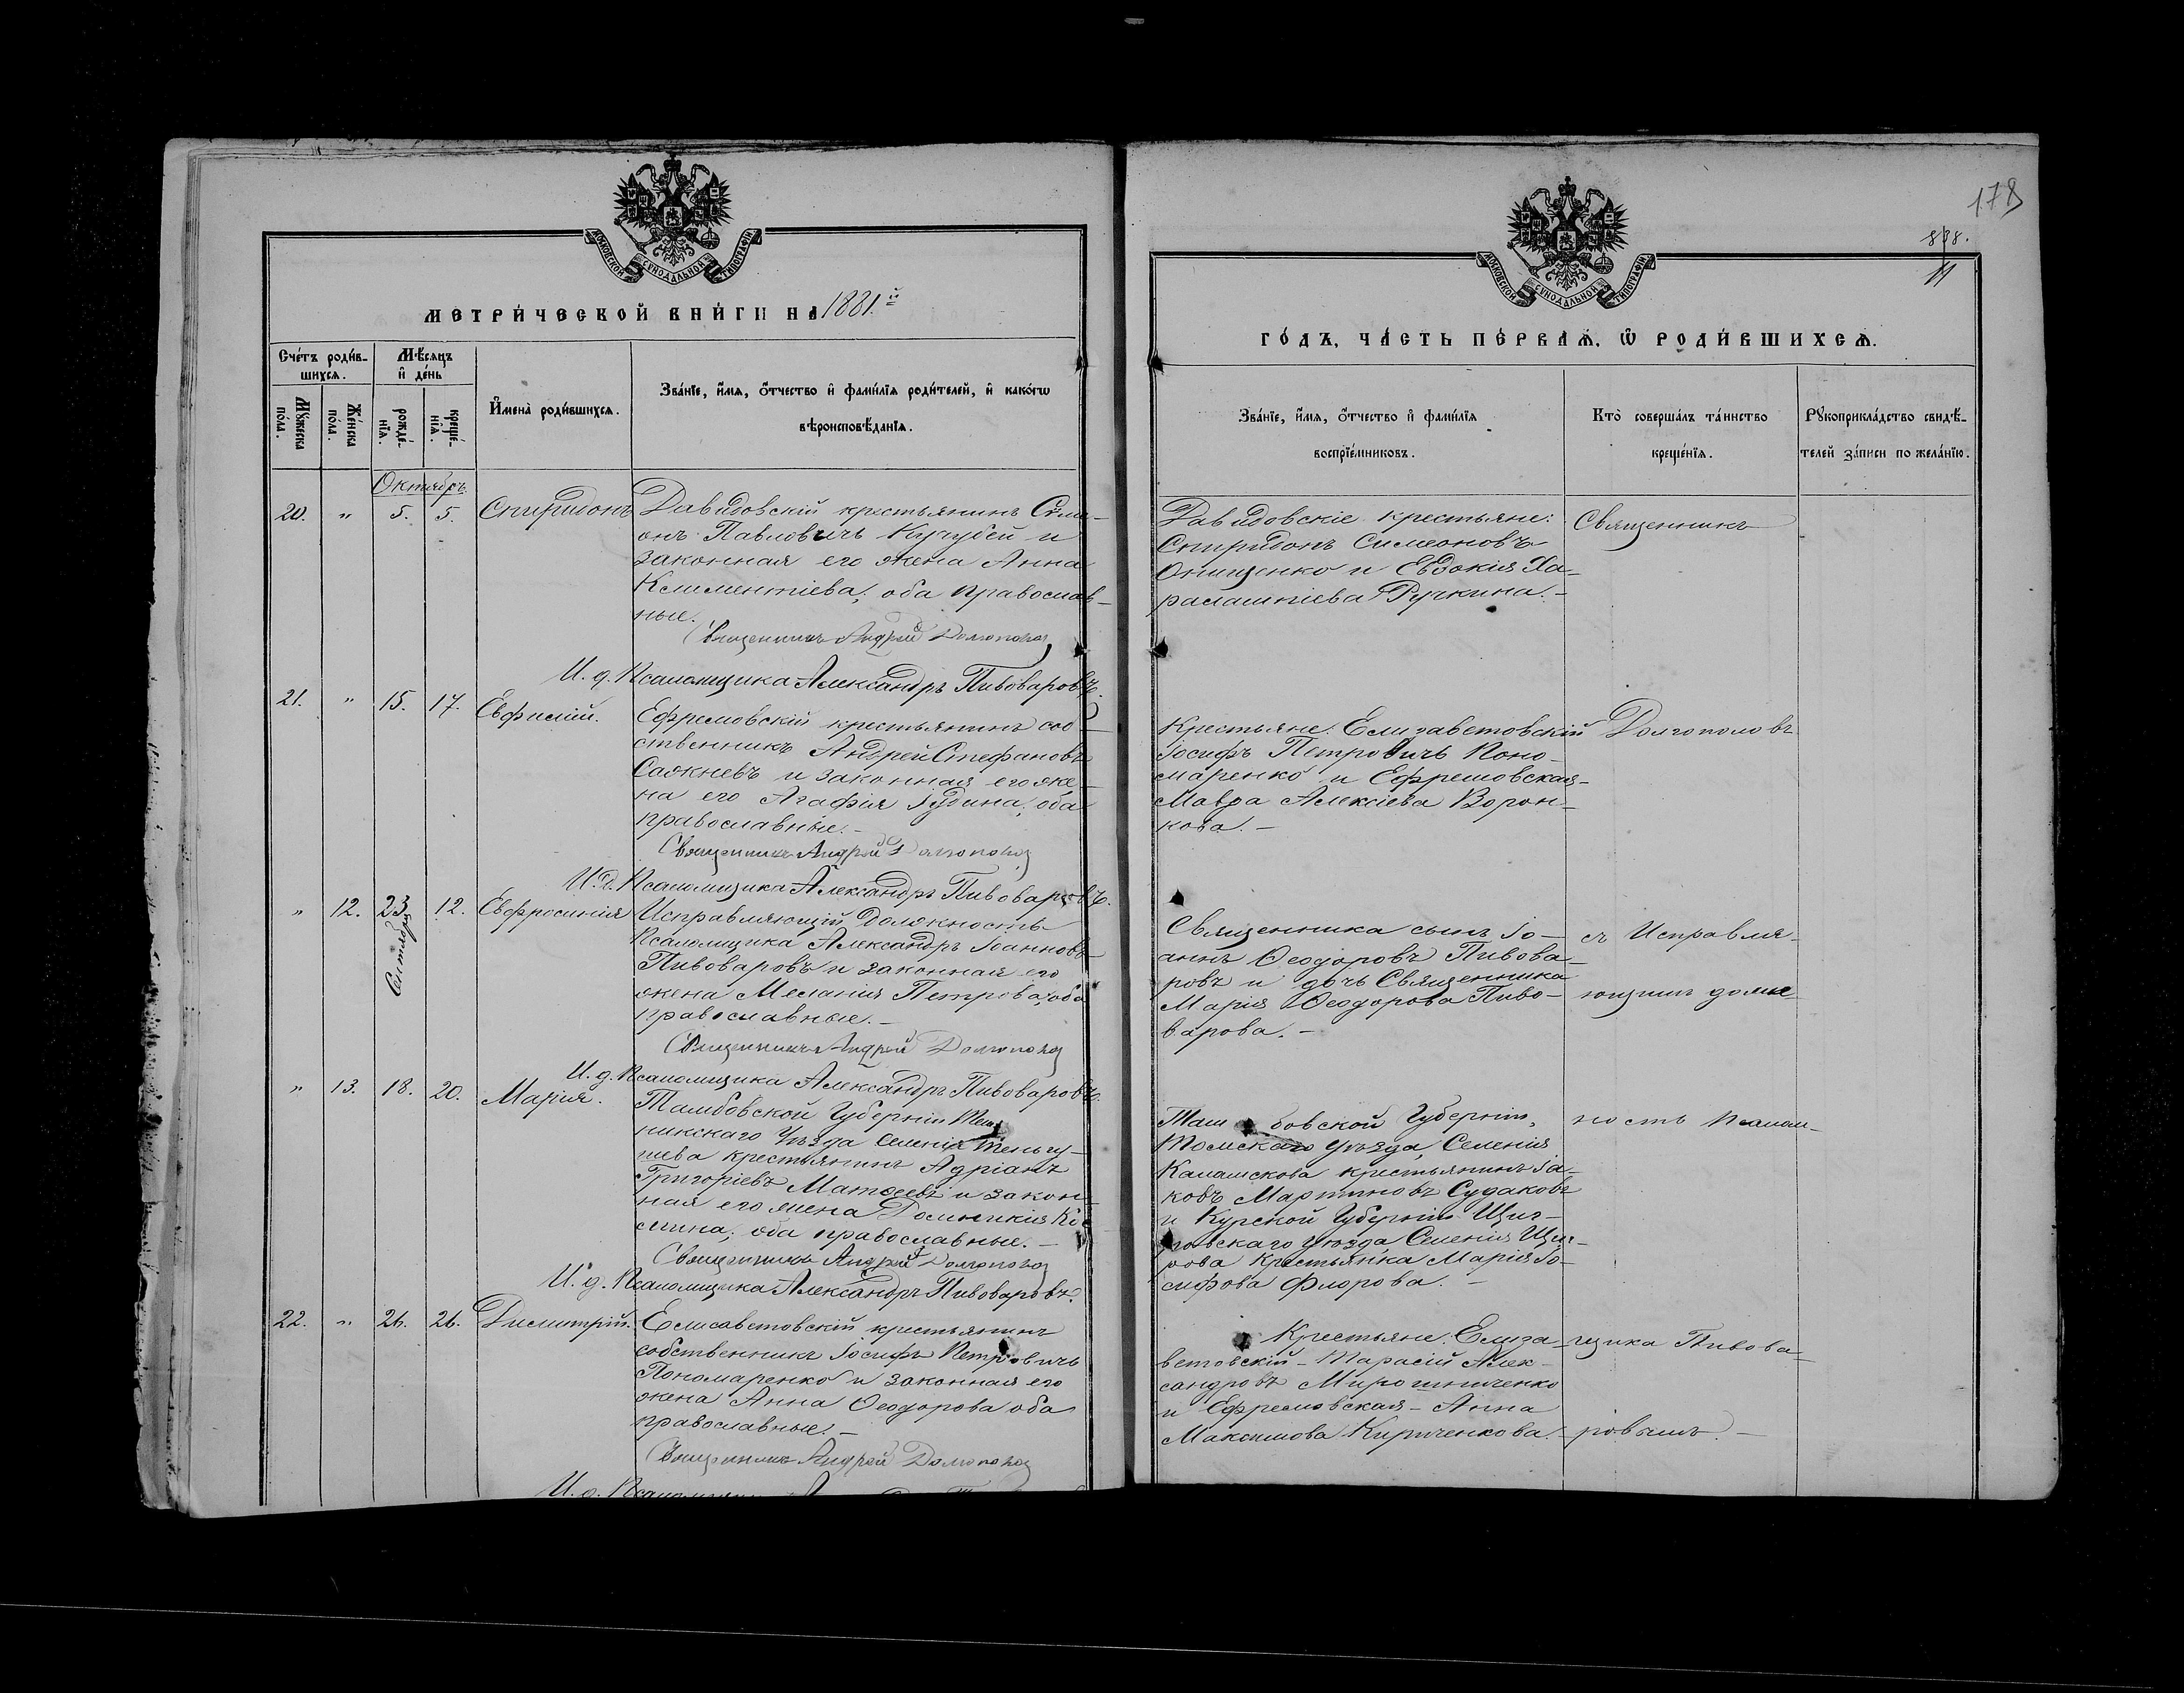 178
838.
11
МОСКОВСКОЙ СѴНОДАЛЬНОЙ ТИПОГРАФІИ
МЕТРИ́ЧЕСКОЙ КНИ́ГИ НА 1881.й
Сче́тъ роди́в-
шихсѧ.
Мꙋжеска
по́ла.
Же́нска
по́ла.
Мѣ́сѧцъ
и҆ де́нь
рожде́-
нїѧ.
креще́-
нїѧ.
И҆мена̀ роди́вшихсѧ.
Зва́нїе, и҆́мѧ, ѻ҆́тчество и҆ фами́лїѧ роди́телей, и҆ како́гѡ
вѣроисповѣ́данїѧ.
Октябрь.
20. " 5. 5. Спиридонъ
Давидовскій крестьянинъ Симе-
онъ Павловичъ Кучубей и
законная его жена Анна
Климентіева, оба православ-
ные.
Священникъ Андрей Долгополов
И. д. Псаломщика Александръ Пивоваровъ.
21. " 15. 17. Евфимій.
Ефремовскій крестьянинъ соб-
ственникъ Андрей Стефановъ
Сажневъ и законная его же-
на его Агафія Іудина, оба
православные.-
Священникъ Андрей Долгополов
И. д. Псаломщика Александръ Пивоваровъ.
" 12. 23 Сентября 12. Евфросинія
Исправляющій должность
Псаломщика Александръ Іоанновъ
Пивоваровъ и законная его
жена Меланія Петрова, оба
православные.-
Священникъ Андрей Долгополов
И. д. Псаломщика Александръ Пивоваровъ.
" 13. 18. 20. Марія.
Тамбовской Губерніи Тем-
никскаго Уѣзда Селенія Теньгу-
шева крестьянинъ Адріанъ
Григоріевъ Матѳеевъ и закон-
ная его жена Домникія Ко-
смина, оба православные.-
Священникъ Андрей Долгополов
И. д. Псаломщика Александръ Пивоваровъ.
22. " 26. 26. Димитрій.
Елисаветовскій крестьянинъ
собственникъ Іосифъ Петровичъ
Пономаренко и законная его
жена Анна Ѳеодорова оба
православные.-
Священникъ Андрей Долгополов
И. д.
МОСКОВСКОЙ СѴНОДАЛЬНОЙ ТИПОГРАФІИ
ГО́ДЪ, ЧА́СТЬ ПЕ́РВАѦ, Ѡ҆ РОДИ́ВШИХСѦ.
Зва́нїе, и҆́мѧ, ѻ҆́тчество и҆ фами́лїѧ
воспрїе́мниковъ.
Кто̀ соверша́лъ та́инство
креще́нїѧ.
Рꙋкоприкла́дство свидѣ́-
телей за́писи по жела́нїю.
Давидовскіе крестьяне:
Спиридонъ Симеоновъ
Онищенко и Евдокія Ха-
ралампіева Ручкина.-
Крестьяне. Елизаветовскій
Іосифъ Петровичъ Поно-
маренко и Ефремовская
Мавра Алексіева Ворон-
кова.-
Священника сынъ Іо-
аннъ Ѳеодоровъ Пивова-
ровъ и дочь Священника
Марія Ѳеодорова Пиво-
варова.-
Тамбовской Губерніи,
Томскаго уѣзда, Селенія
Камашкова крестьянинъ Іа-
ковъ Мартиновъ Судаковъ
и Курской Губерніи Щиг-
ровскаго уѣзда Селенія Щиг-
рова Крестьянка Марія Іо-
сифова Флорова.-
Крестьяне. Елиза-
ветовскій - Тарасій Алек-
сандровъ Мирошниченко
и Ефремовская - Анна
Максимова Кириченкова.
Священникъ
Долгополовъ
съ Исправля-
ющимъ долж-
ность Псалом-
щика Пивова-
ровымъ.-